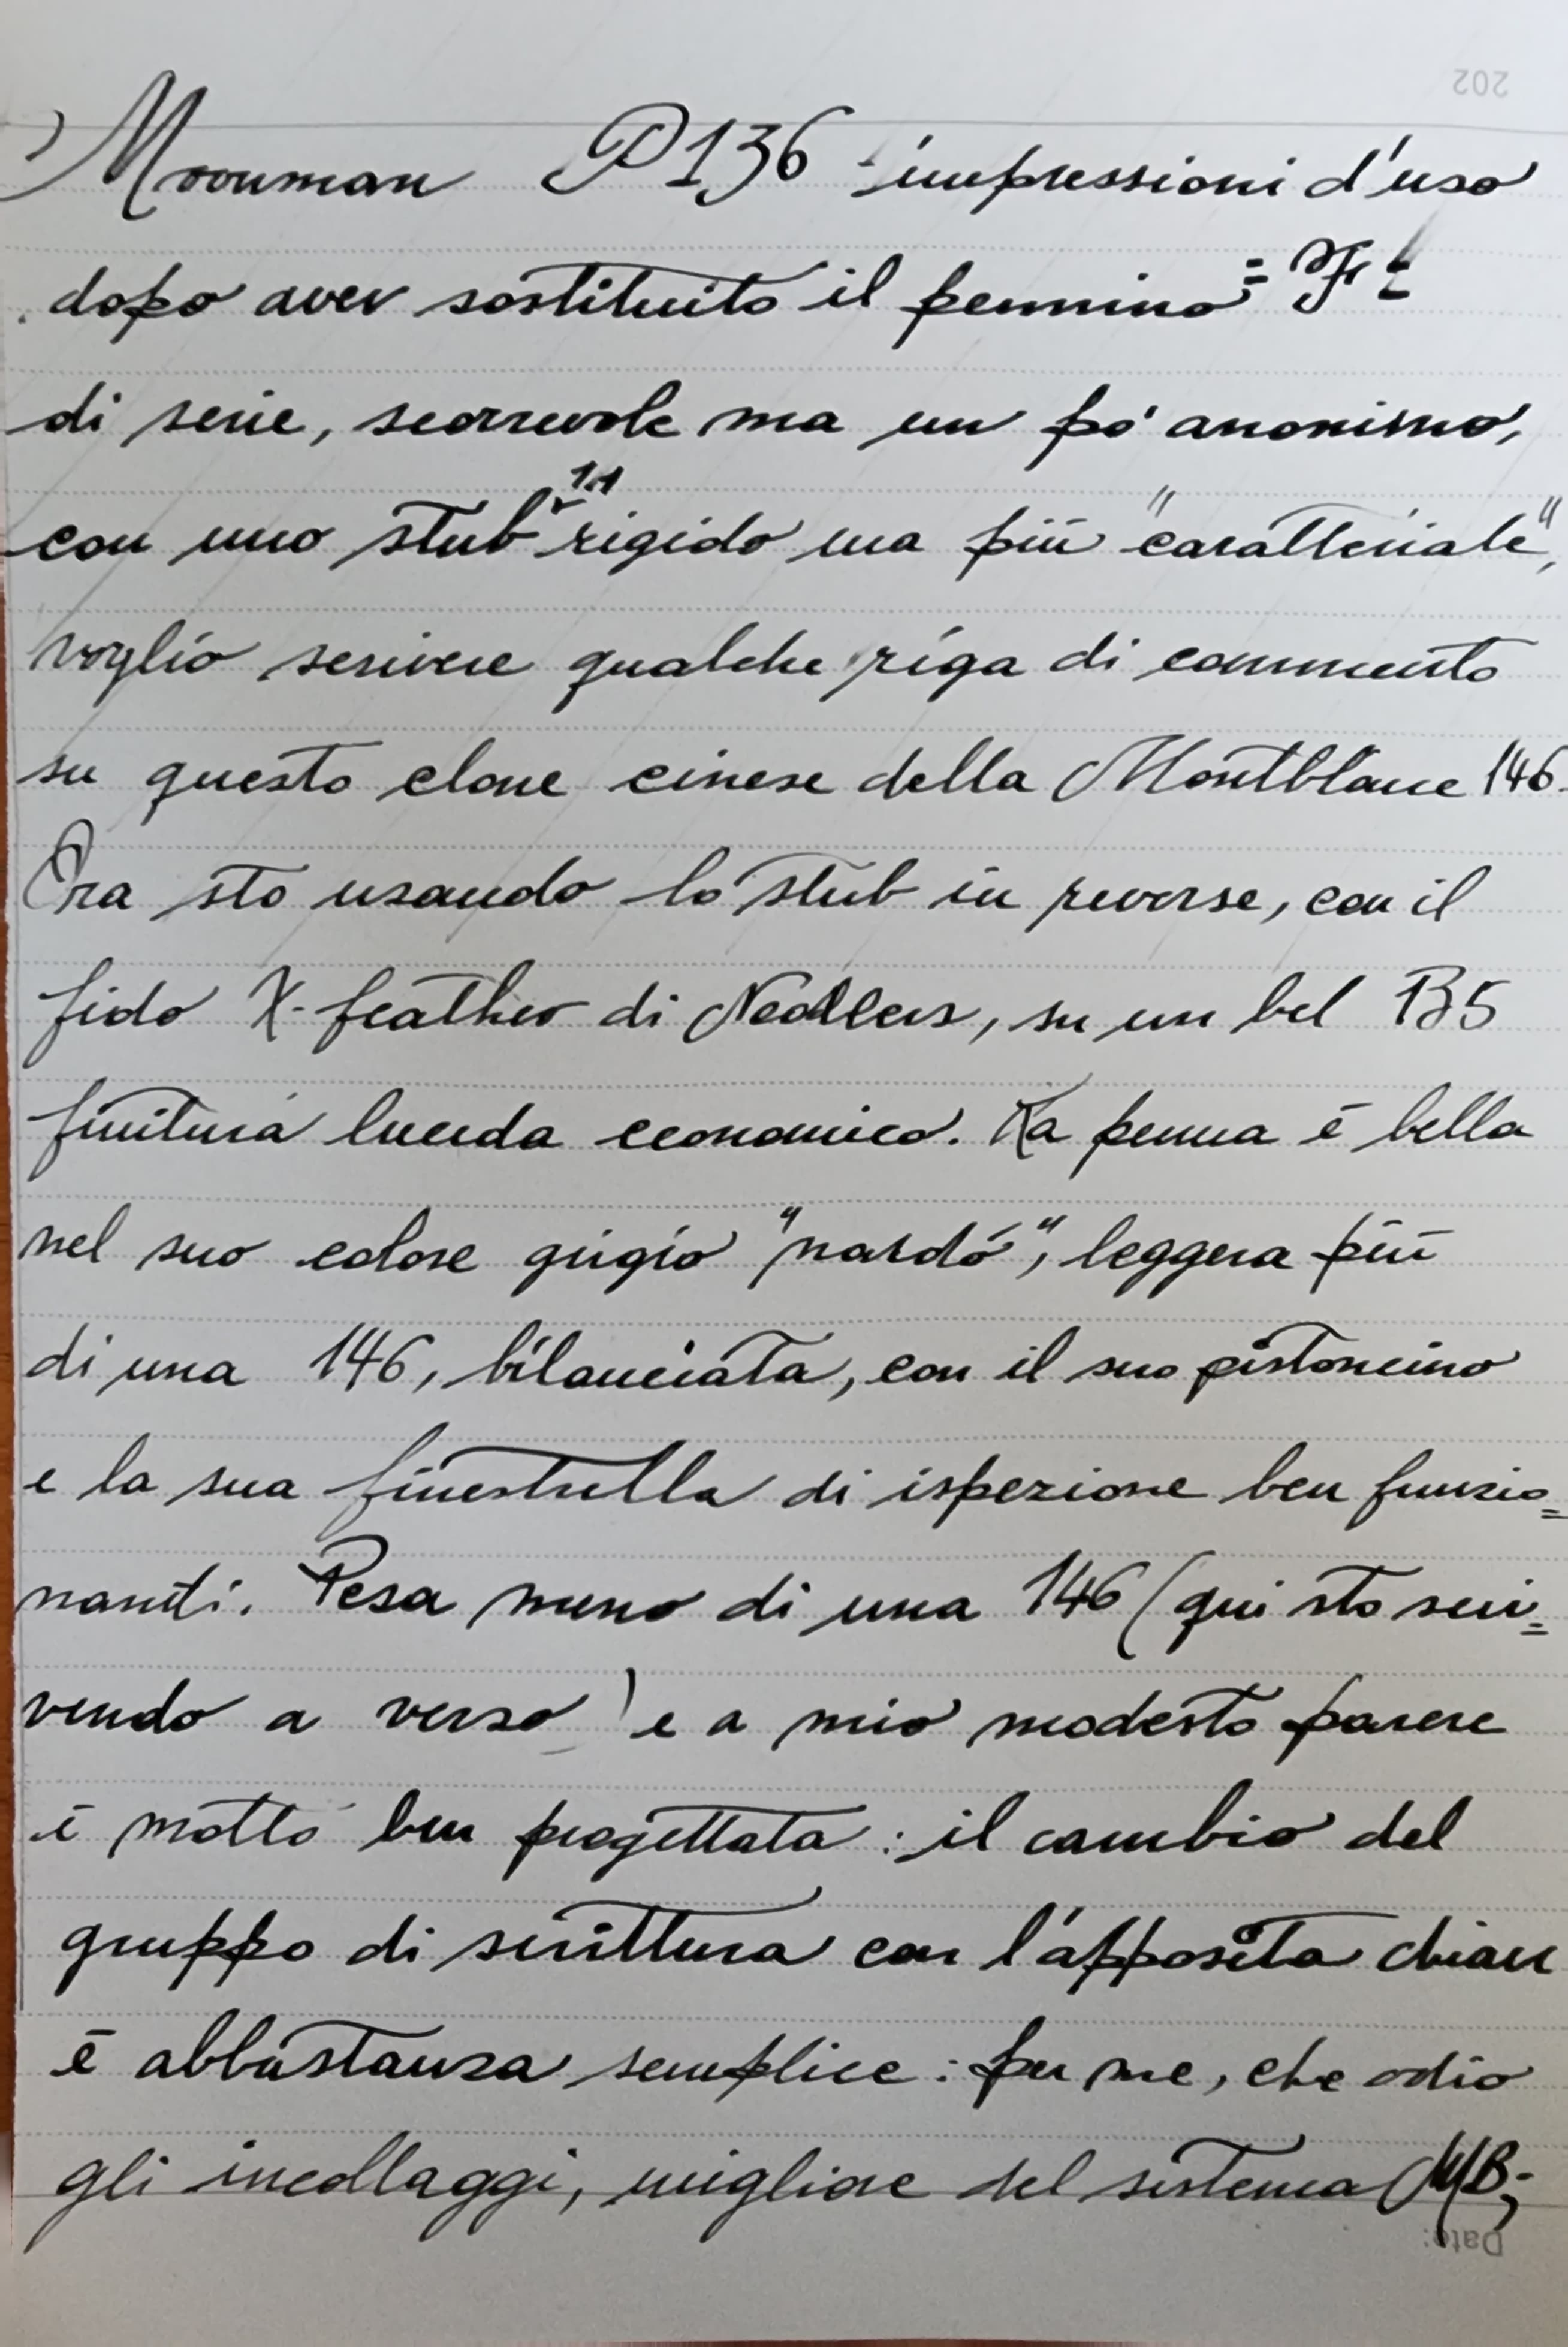 202
Moonman P136 impressioni d'uso
dopo aver sostituito il pennino "F"
di serie, scorrevole ma un pò anonimo,
con uno stub 1.1 rigido ma più "caratteriale",
voglio scrivere qualche riga di commento
su questo clone cinese della Montblanc 146.
Ora sto usando lo stub in reverse, con il
fido X-feather di Noodlers, su un bel B5
finitura lucida economico. La penna è bella
nel suo colore grigio "nardò", leggera più
di una 146, bilanciata, con il suo pistoncino
e la sua finestrella di ispezione ben funzio=
nanti. Pesa meno di una 146 (qui sto scri=
vendo a verso) e a mio modesto parere
è molto ben progettata: il cambio del
gruppo di scrittura con l'apposita chiave
è abbastanza semplice: per me, che odio
gli incollaggi, migliore del sistema MB;
Date: